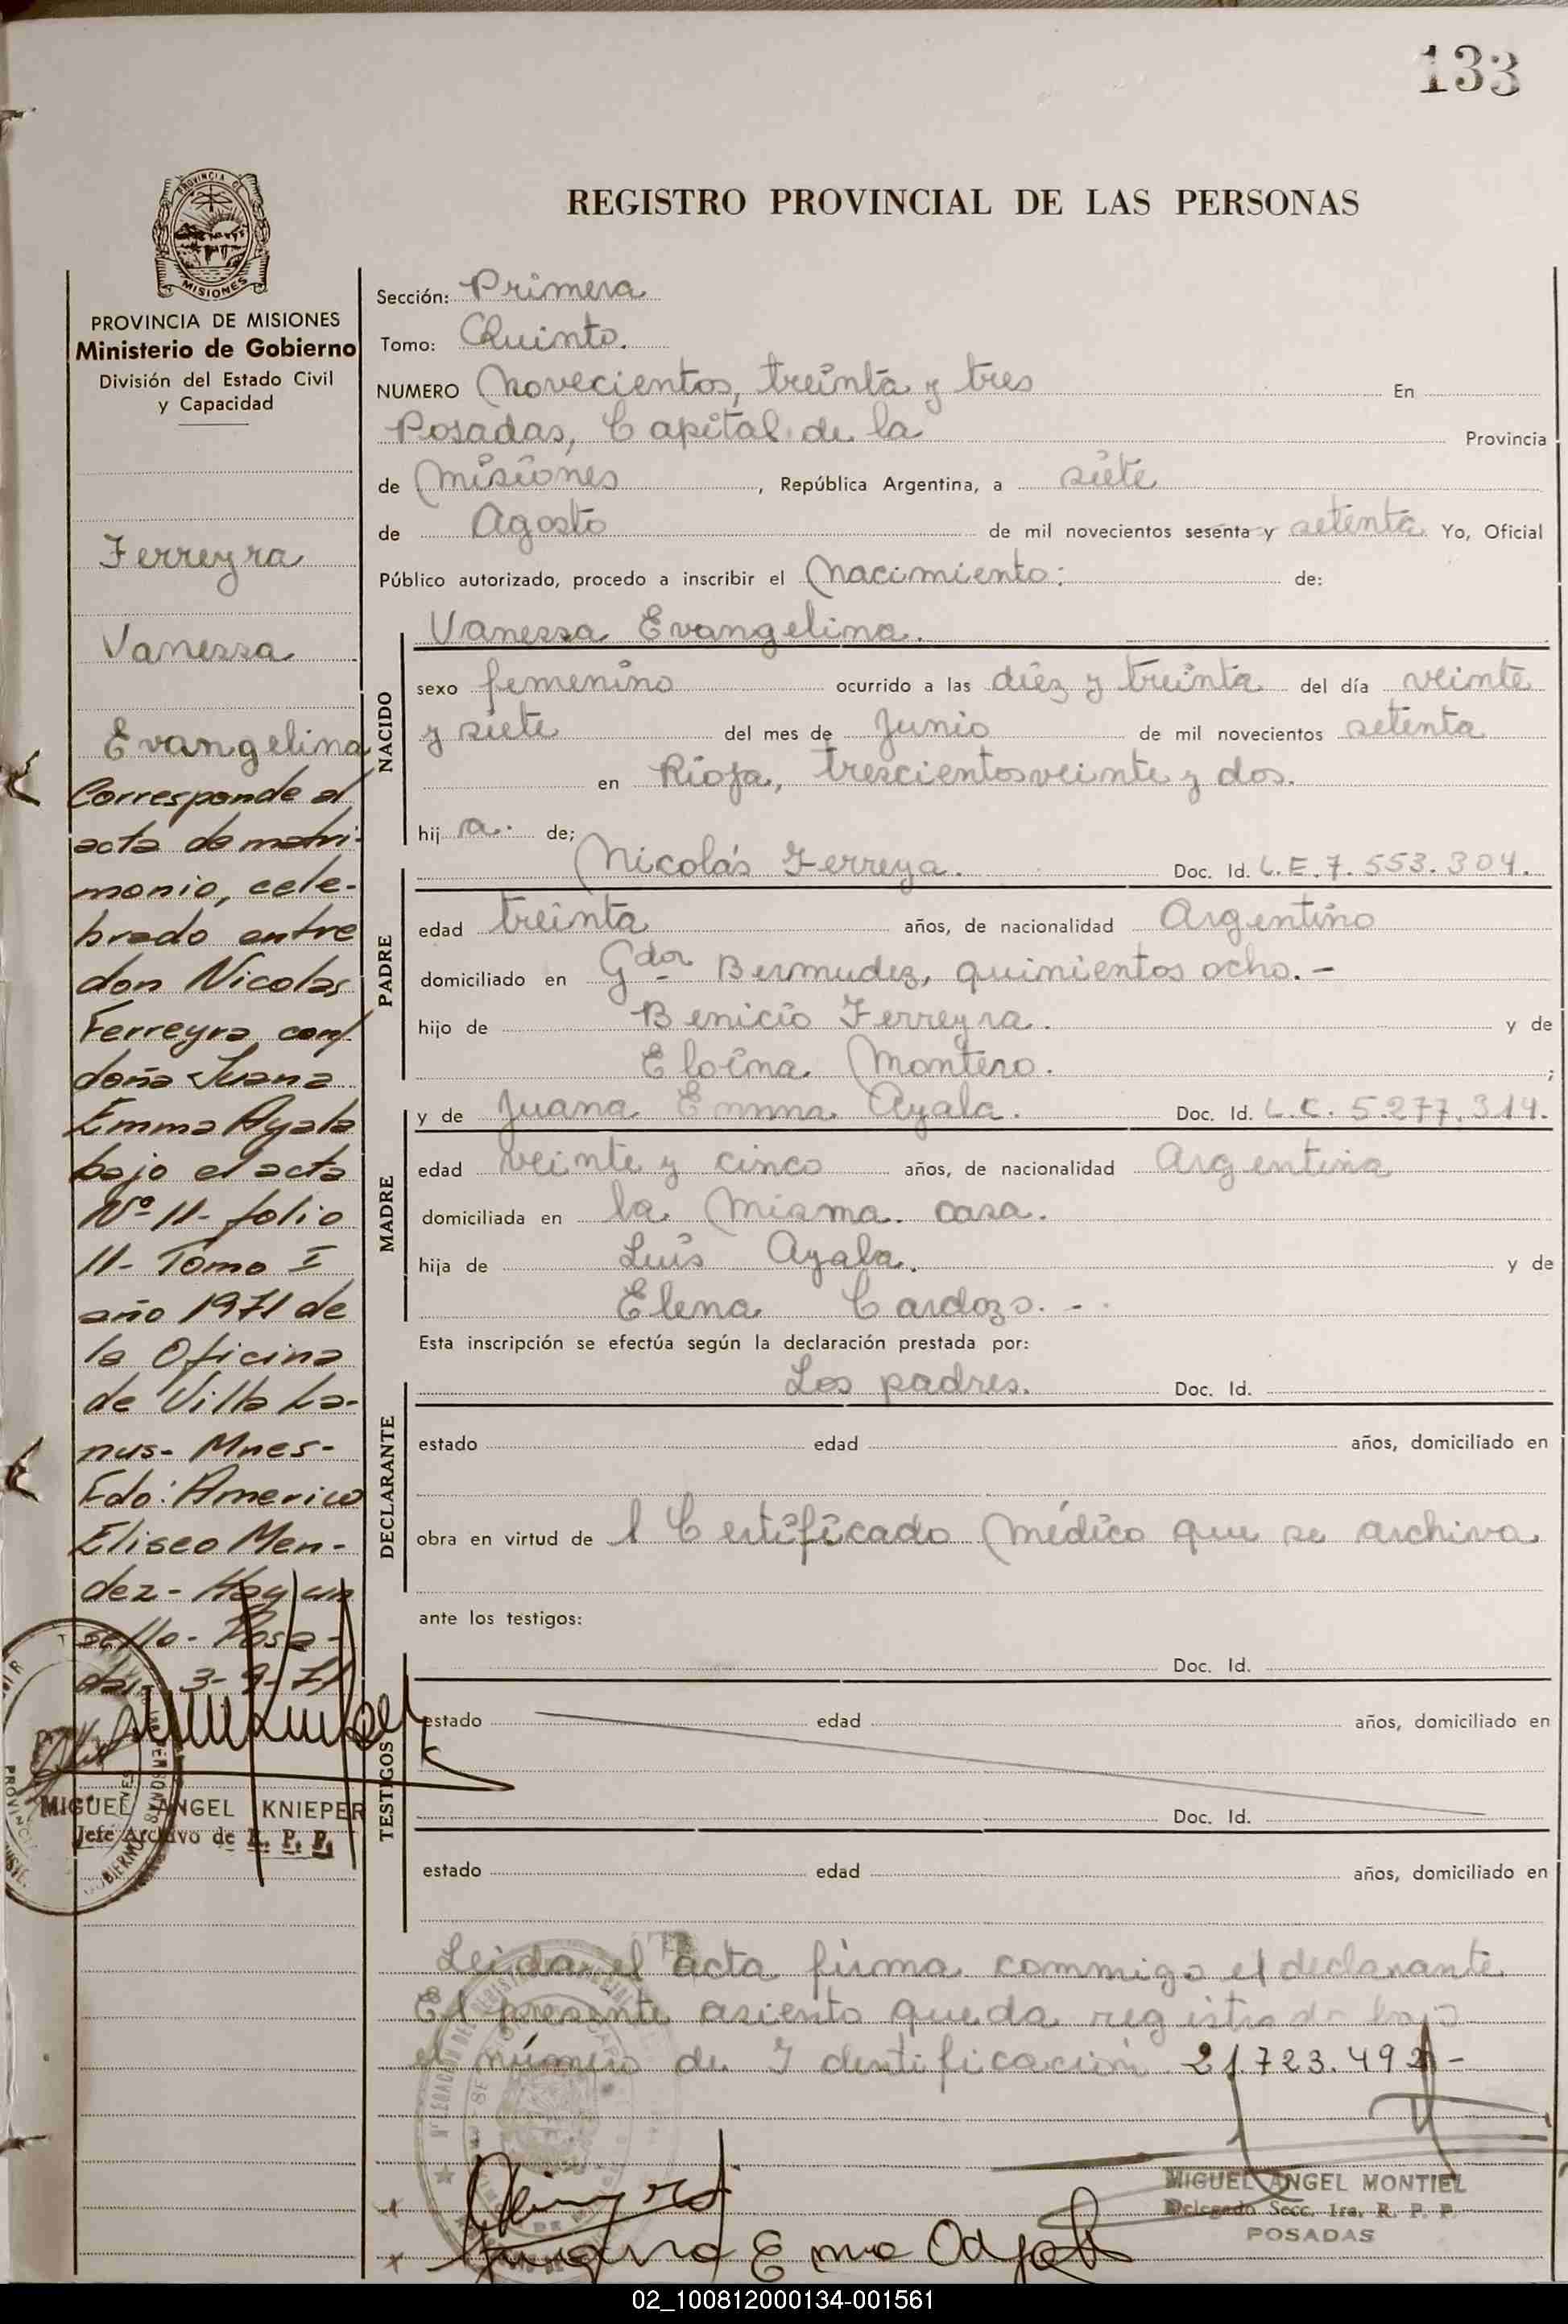 133
PROVINCIA DE
MISIONES
REGISTRO PROVINCIAL DE LAS PERSONAS
PROVINCIA DE MISIONES
Ministerio de Gobierno
División del Estado Civil
y Capacidad
Ferreyra
Vanessa
Evangelina
Corresponde al
acta de matri-
monio, cele-
brado entre
don Nicolas
Ferreyra con
doña Juana
Emma Ayala
bajo el acta
Nº 11- folio
11- Tomo I
año 1971 de
la Oficina
de Villa La-
nus- Mnes-
Fdo: Americo
Eliseo Men-
dez- Hay un
sello- Posa-
das, 3-9-71
MIGUEL ANGEL KNIEPER
Jefe Archivo de R. P. P.
Sección: Primera
Tomo: Quinto.
NUMERO Novecientos, treinta y tres En
Posadas, Capital de la Provincia
de Misiones, República Argentina, a siete
de Agosto de mil novecientos sesenta y setenta Yo, Oficial
Público autorizado, procedo a inscribir el Nacimiento: de:
NACIDO
Vanessa Evangelina.
sexo femenino ocurrido a las diéz y treinta del día veinte
y siete del mes de Junio de mil novecientos setenta
en Rioja, trescientos veinte y dos.
hij a. de;
PADRE
Nicolás Ferreya. Doc. Id. L.E. 7.553.304.
edad treinta años, de nacionalidad Argentino
domiciliado en Gdor Bermudez, quinientos ocho.-
hijo de Benicio Ferreyra. y de
Eloina Montero. ;
MADRE
y de Juana Emma Ayala. Doc. Id. L.C. 5.277.314.
edad veinte y cinco años, de nacionalidad Argentina
domiciliada en la misma casa.
hija de Luis Ayala. y de
Elena Cardozo. -
Esta inscripción se efectúa según la declaración prestada por:
DECLARANTE
Los padres. Doc. Id.
estado edad años, domiciliado en
obra en virtud de l Certificado Médico que se archiva
ante los testigos:
TESTIGOS
Doc. Id.
estado edad años, domiciliado en
Doc. Id.
estado edad años, domiciliado en
Leida el acta firma conmigo el declarante
El presente asiento queda registrado bajo
el número de Identificación 21.723.492-
MIGUEL ANGEL MONTIEL
Delegado Secc. 1ra. R. P. P.
POSADAS
02_100812000134-001561